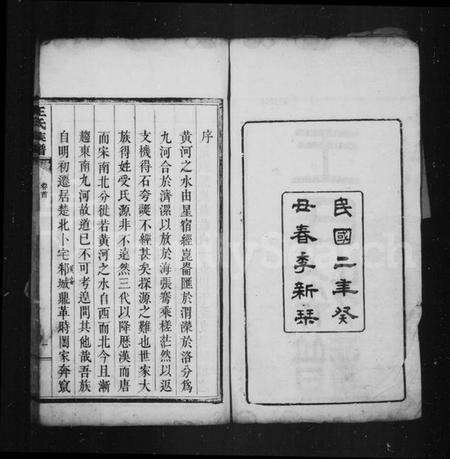 民國二年癸
丑春季新琹
序
黃河之水由星宿經崑崙匯於渭濼於洛分爲
九河合於濟漯以放於海張騫乘槎茫然以返
支機得石夸誕不經甚矣探源之難也世家大
族得姓受氏源非不遠然三代以降歷漢而唐
而宋南北分徙若黃河之水自西而北今且漸
趨東南九河故道已不可考遑問其他哉吾族
自明初遷居楚北卜宅郗城鼎革時闔家奔竄
王氏族譜
卷首